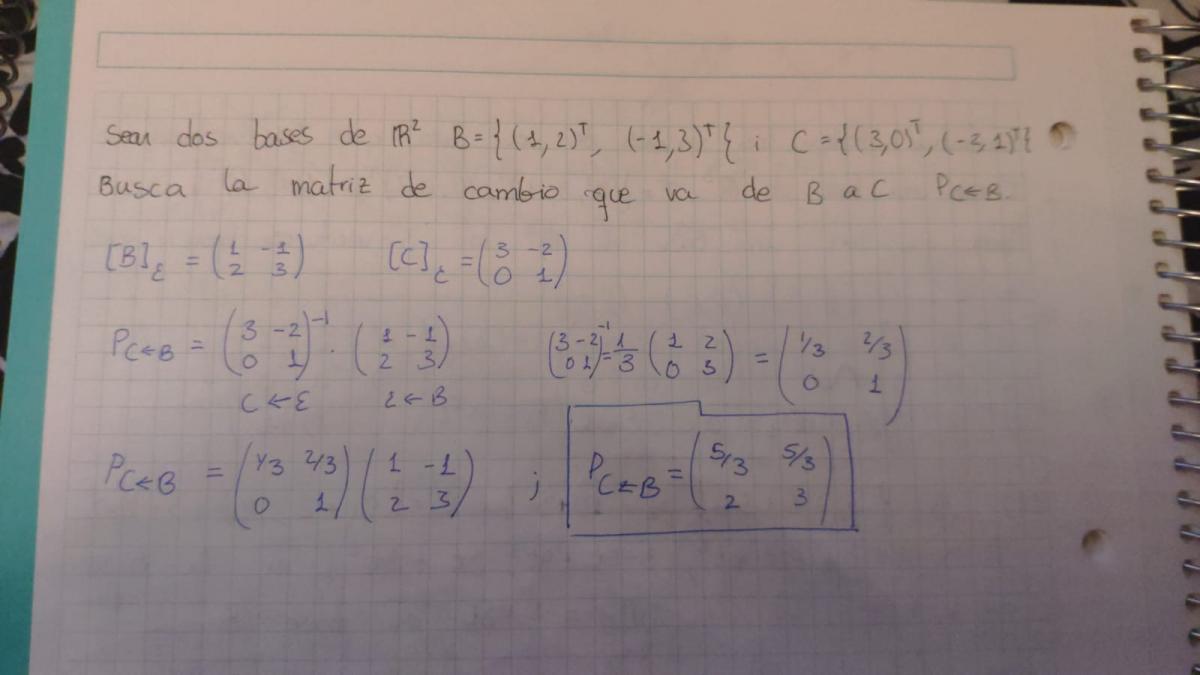 Sean dos bases de ℝ² B={(1,2)ᵀ, (-1,3)ᵀ} i C={(3,0)ᵀ, (-2,1)ᵀ}
Busca la matriz de cambio que va de B a C P_{C←B}.
[B]_ε = (1 -1; 2 3) [C]_ε = (3 -2; 0 1)
P_{C←B} = (3 -2; 0 1)⁻¹ · (1 -1; 2 3) (3 -2; 0 1)⁻¹ = 1/3 (1 2; 0 3) = (1/3 2/3; 0 1)
C←ε ε←B
P_{C←B} = (1/3 2/3; 0 1) (1 -1; 2 3) ; P_{C←B} = (5/3 5/3; 2 3)